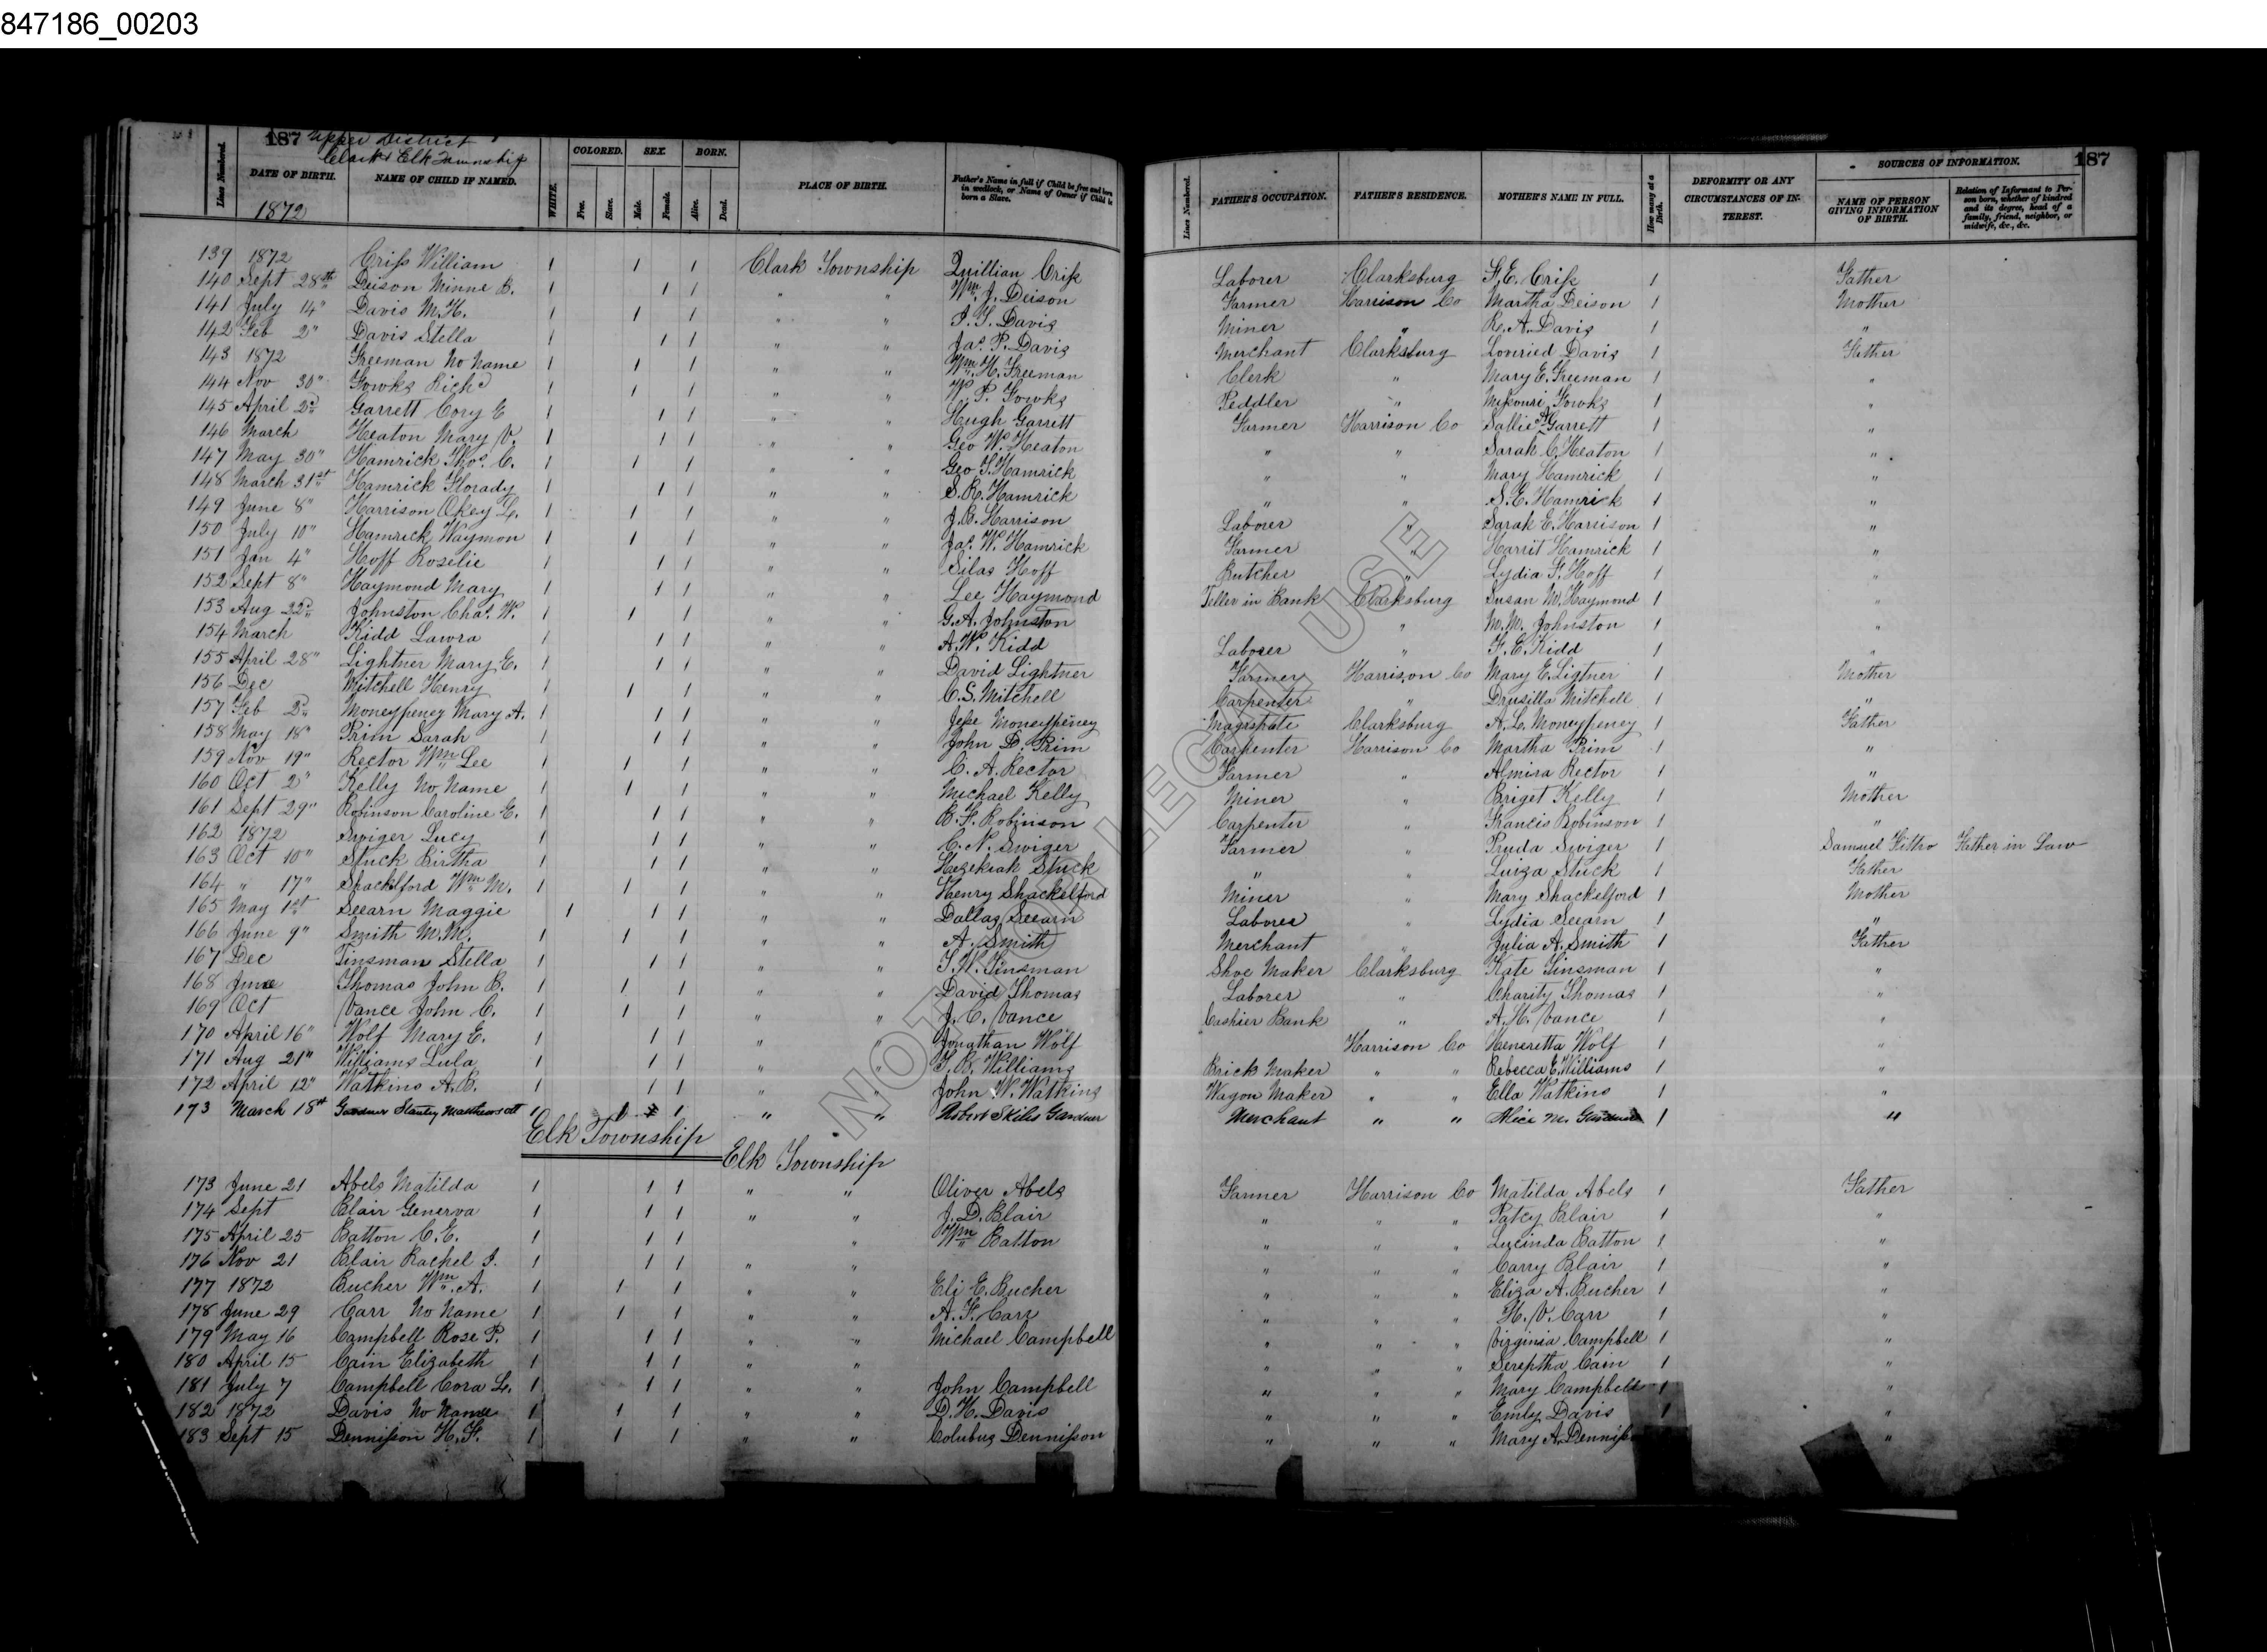 847186_00203
187 Upper District
Clark & Elk Township
187
Lines Numbered.
DATE OF BIRTH.
1872
NAME OF CHILD IF NAMED.
WHITE.
COLORED.
Free.
Slave.
SEX.
Male.
Female.
BORN.
Alive.
Dead.
PLACE OF BIRTH.
Father's Name in full if Child be free and born in wedlock, or Name of Owner if Child be born a Slave.
Lines Numbered.
FATHER'S OCCUPATION.
FATHER'S RESIDENCE.
MOTHER'S NAME IN FULL.
How many at a Birth.
DEFORMITY OR ANY CIRCUMSTANCES OF INTEREST.
SOURCES OF INFORMATION.
NAME OF PERSON GIVING INFORMATION OF BIRTH.
Relation of Informant to Person born, whether of kindred and its degree, head of a family, friend, neighbor, or midwife, &c., &c.
139 1872 Criss William 1 1 1 Clark Township Quillian Criss Laborer Clarksburg F. E. Criss 1 Father
140 Sept 28th Deison Minne B. 1 1 1 " " Wm. J. Deison Farmer Harrison Co Martha Deison 1 Mother
141 July 14" Davis M. H. 1 1 1 " " Davis Miner " R. A. Davis 1 "
142 Feb 2" Davis Stella 1 1 1 " " Jas P. Davis Merchant Clarksburg Lonried Davis 1 Father
143 1872 Freeman No Name 1 1 1 " " Wm. H. Freeman Clerk " Mary E. Freeman 1 "
144 Nov 30" Fowks Richd 1 1 1 " " W. P. Fowks Peddler " Missouri Fowks 1 "
145 April 2d Garrett Cory E 1 1 1 " " Hugh Garrett Farmer Harrison Co Sallie A Garrett 1 "
146 March Heaton Mary V. 1 1 1 " " Geo W. Heaton " " Sarah C. Heaton 1 "
147 May 30" Hamrick Thos. C. 1 1 1 " " Geo T. Hamrick " " Mary Hamrick 1 "
148 March 31st Hamrick Florady 1 1 1 " " S. R. Hamrick " " S. E. Hamrick 1 "
149 June 8" Harrison Okey L. 1 1 1 " " J. B. Harrison Laborer " Sarah E. Harrison 1 "
150 July 10" Hamrick Waymon 1 1 1 " " Jas. W. Hamrick Farmer " Harrit Hamrick 1 "
151 Jan 4" Hoff Roselie 1 1 1 " " Silas Hoff Butcher " Lydia F. Hoff 1 "
152 Sept 8" Haymond Mary 1 1 1 " " Lee Haymond Teller in Bank Clarksburg Susan W. Haymond 1 "
153 Aug 22d Johnston Chas. W. 1 1 1 " " G. A. Johnston " M. M. Johnston 1 "
154 March Kidd Lawra 1 1 1 " " A. W. Kidd Laborer " F. C. Kidd 1 "
155 April 28" Lightner Mary E. 1 1 1 " " David Lightner Farmer Harrison Co Mary E. Ligtner 1 Mother
156 Dec Mitchell Henry 1 1 1 " " C. S. Mitchell Carpenter " Drusilla Mitchell 1 "
157 Feb 2d Moneypeney Mary A. 1 1 1 " " Jesse Moneypeney Magistrate Clarksburg A. L. Moneypeney 1 Father
158 May 18" Prim Sarah 1 1 1 " " John D. Prim Carpenter Harrison Co Martha Prim 1 "
159 Nov 19" Rector Wm Lee 1 1 1 " " C. A. Rector Farmer " Almira Rector 1 "
160 Oct 2" Kelly No Name 1 1 1 " " Michael Kelly Miner " Briget Kelly 1 Mother
161 Sept 29" Robinson Caroline E. 1 1 1 " " B. F. Robinson Carpenter " Francis Robinson 1 "
162 1872 Swiger Lucy 1 1 1 " " C. N. Swiger Farmer " Pruda Swiger 1 Samuel Father in Law
163 Oct 10" Stuck Birtha 1 1 1 " " Hezekiah Stuck " " Luiza Stuck 1 Father
164 " 17" Shackelford Wm M. 1 1 1 " " Henry Shackelford Miner " Mary Shackelford 1 Mother
165 May 1st Seearn Maggie 1 1 1 " " Dallas Seearn Laborer " Lydia Seearn 1 "
166 June 9" Smith M. M. 1 1 1 " " A. Smith Merchant " Julia A. Smith 1 Father
167 Dec Tinsman Stella 1 1 1 " " T. W. Tinsman Shoe Maker Clarksburg Kate Tinsman 1 "
168 June Thomas John B. 1 1 1 " " David Thomas Laborer " Charity Thomas 1 "
169 Oct Vance John C. 1 1 1 " " J. C. Vance Cashier Bank " A. H. Vance 1 "
170 April 16" Wolf Mary E. 1 1 1 " " Jonathan Wolf Harrison Co Heneretta Wolf 1 "
171 Aug 21" Williams Lula 1 1 1 " " T. B. Williams Brick Maker " " Rebecca E. Williams 1 "
172 April 12" Watkins A. B. 1 1 1 " " John W. Watkins Wagon Maker " " Ella Watkins 1 "
173 March 18th Gardner Stanley Matthews 1 1 1 " " Robert Skiles Gardner Merchant " " Alice M. Gardner 1 "
Elk Township
Elk Township
173 June 21 Abels Matilda 1 1 1 " " Oliver Abels Farmer Harrison Co Matilda Abels 1 Father
174 Sept Blair Generva 1 1 1 " " J. D. Blair " " " Patcy Blair 1 "
175 April 25 Batton C. E. 1 1 1 " Wm Batton " " " Lucinda Batton 1 "
176 Nov 21 Blair Rachel J. 1 1 1 " " " " " Carry Blair 1 "
177 1872 Bucher Wm. A. 1 1 1 " " Eli E. Bucher " " " Eliza A. Bucher 1 "
178 June 29 Carr No Name 1 1 1 " " A. F. Carr " " " H. V. Carr 1 "
179 May 16 Campbell Rose P. 1 1 1 " " Michael Campbell " " " Virginia Campbell 1 "
180 April 15 Cain Elizabeth 1 1 1 " " " " " Sereptha Cain 1 "
181 July 7 Campbell Cora L. 1 1 1 " " John Campbell " " " Mary Campbell 1 "
182 1872 Davis No Name 1 1 1 " " D. H. Davis " " " Emly Davis 1 "
183 Sept 15 Dennisson H. F. 1 1 1 " " Colubus Dennisson " " " Mary A. "
NOT FOR LEGAL USE